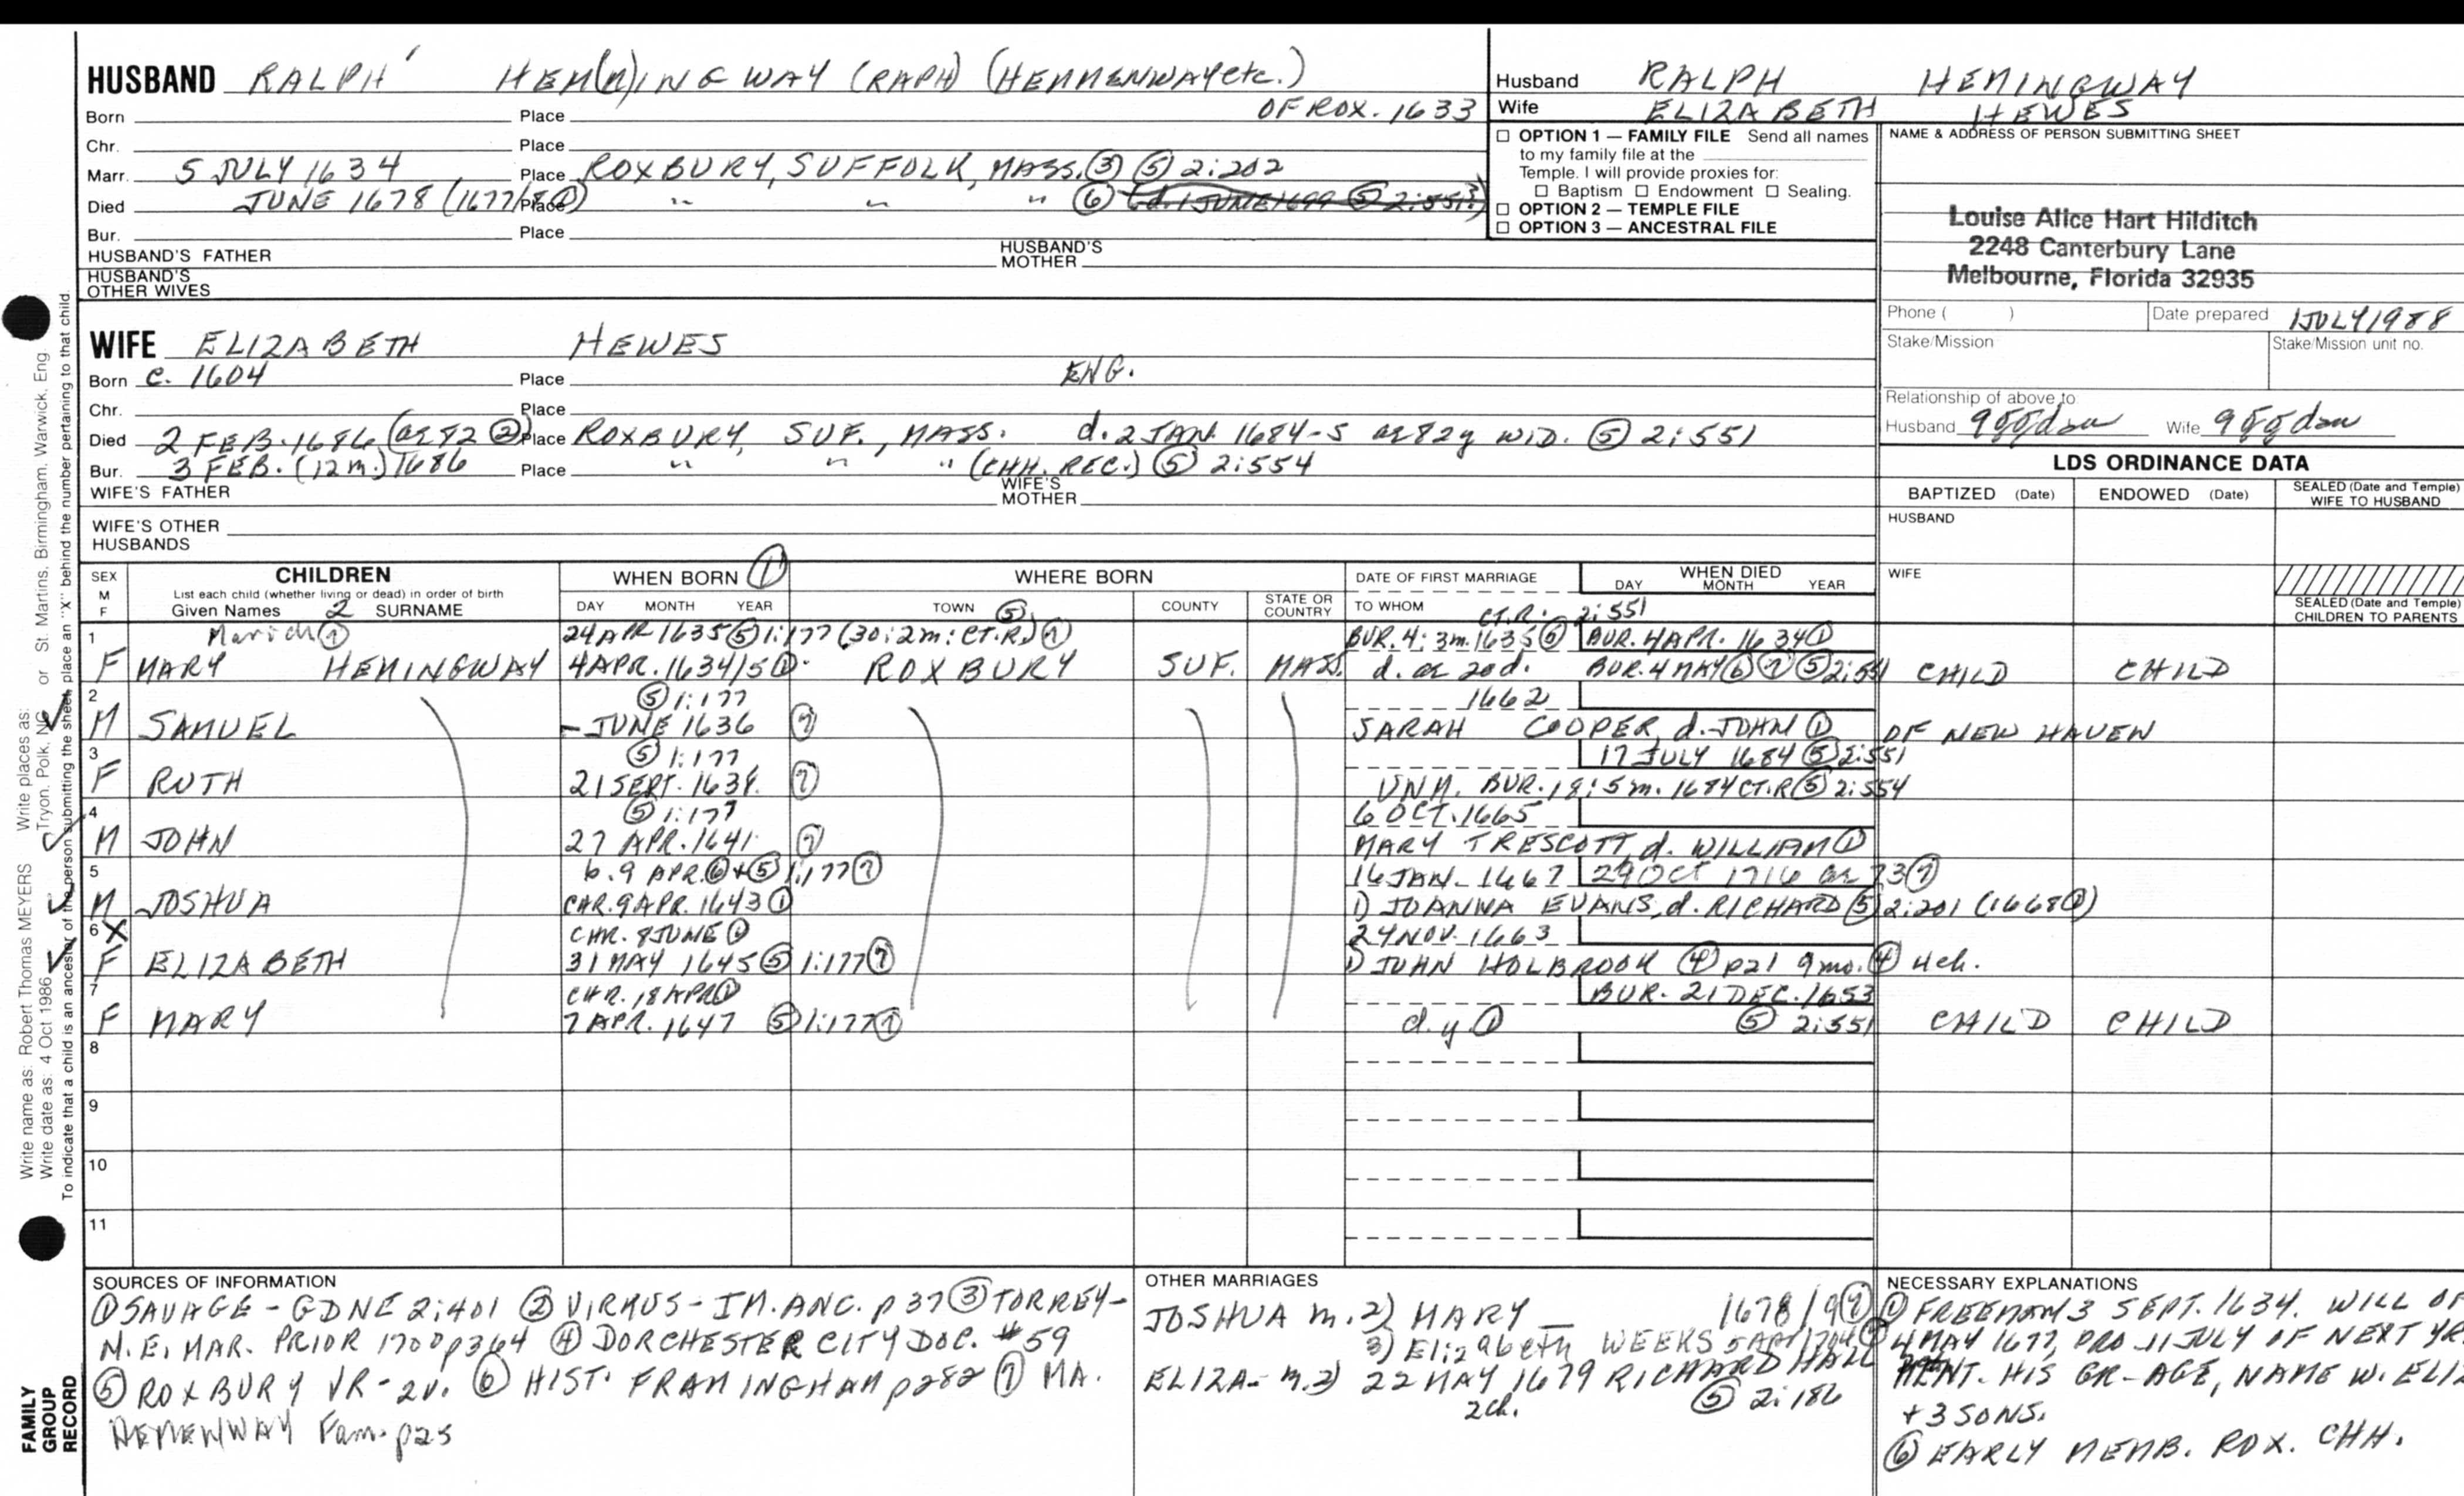 HUSBAND RALPH HEM(N)INGWAY (RAPH) (HEMMENWAY etc.)
Born Place OF ROX. 1633
Chr. Place
Marr. 5 JULY 1634 Place ROXBURY, SUFFOLK, MASS. ③ ⑤ 2:202
Died JUNE 1678 (1677/8 ①) Place " " " ⑥ (d. 1 JUNE 1699 ⑤ 2:551?)
Bur. Place
HUSBAND'S FATHER HUSBAND'S MOTHER
HUSBAND'S OTHER WIVES
Husband RALPH HEMINGWAY
Wife ELIZABETH HEWES
☐ OPTION 1 — FAMILY FILE Send all names
to my family file at the
Temple. I will provide proxies for:
☐ Baptism ☐ Endowment ☐ Sealing.
☐ OPTION 2 — TEMPLE FILE
☐ OPTION 3 — ANCESTRAL FILE
NAME & ADDRESS OF PERSON SUBMITTING SHEET
Louise Alice Hart Hilditch
2248 Canterbury Lane
Melbourne, Florida 32935
Phone ( ) Date prepared 1 JULY 1988
Stake/Mission Stake/Mission unit no.
Relationship of above to:
Husband 9ggdau Wife 9ggdau
WIFE ELIZABETH HEWES
Born c. 1604 Place ENG.
Chr. Place
Died 2 FEB. 1686 (ae 82 ②) Place ROXBURY, SUF., MASS. d. 2 JAN. 1684-5 ae 82y WID. ⑤ 2:551
Bur. 3 FEB. (12m.) 1686 Place " " " (CHH. REC.) ⑤ 2:554
WIFE'S FATHER WIFE'S MOTHER
WIFE'S OTHER HUSBANDS
LDS ORDINANCE DATA
BAPTIZED (Date) ENDOWED (Date) SEALED (Date and Temple) WIFE TO HUSBAND
HUSBAND
WIFE
SEALED (Date and Temple) CHILDREN TO PARENTS
SEX M F CHILDREN WHEN BORN ① WHERE BORN DATE OF FIRST MARRIAGE WHEN DIED
List each child (whether living or dead) in order of birth DAY MONTH YEAR
Given Names 2 SURNAME DAY MONTH YEAR TOWN ⑤ COUNTY STATE OR COUNTRY TO WHOM CT.R. 2:551
1 ⑦ 24 APR 1635 ⑤ 1:177 (30:2m: CT.R.) ⑦ BUR. 4:3m.1635 ⑤ BUR. 4 APR. 1634 ①
F MARY HEMINGWAY 4 APR. 1634/5 ① ROXBURY SUF. MASS. d. ae 20d. BUR. 4 MAY ⑥ ⑦ ⑤ 2:551 CHILD CHILD
2 ⑤ 1:177 1662
M SAMUEL – JUNE 1636 ⑦ SARAH COOPER, d. JOHN ① OF NEW HAVEN
3 ⑤ 1:177 17 JULY 1684 ⑤ 2:551
F RUTH 21 SEPT. 1638 ⑦ UNM. BUR. 18:5m. 1684 CT.R ⑤ 2:554
4 ⑤ 1:177 6 OCT. 1665
M JOHN 27 APR. 1641 ⑦ MARY TRESCOTT, d. WILLIAM ①
5 b. 9 APR. ⑥ + ⑤ 1:177 ⑦ 16 JAN. 1667 29 OCT 1716 ae 73 ⑦
M JOSHUA CHR. 9 APR. 1643 ① 1) JOANNA EVANS, d. RICHARD ⑤ 2:201 (1668 ①)
6 X CHR. 8 JUNE ① 24 NOV. 1663
F ELIZABETH 31 MAY 1645 ⑤ 1:177 ⑦ 1) JOHN HOLBROOK ④ p21 9mo. ④ 4ch.
7 CHR. 18 APR ① BUR. 21 DEC. 1653
F MARY 7 APR. 1647 ⑤ 1:177 ⑦ d.y. ① ⑤ 2:551 CHILD CHILD
8
9
10
11
SOURCES OF INFORMATION
① SAVAGE - GDNE 2:401 ② VIRKUS - IM. ANC. p 37 ③ TORREY -
N.E. MAR. PRIOR 1700 p364 ④ DORCHESTER CITY DOC. #59
⑤ ROXBURY VR - 2v. ⑥ HIST. FRAMINGHAM p282 ⑦ MA.
HEMENWAY Fam. p25
OTHER MARRIAGES
JOSHUA m. 2) MARY — 1678/9 ⑦
3) Elizabeth WEEKS 5 APR 1704 ⑦
ELIZA- m. 2) 22 MAY 1679 RICHARD HALL
2ch. ⑤ 2:186
NECESSARY EXPLANATIONS
① FREEMAN 3 SEPT. 1634. WILL OF
4 MAY 1677, PRO 11 JULY OF NEXT YR.
MENT. HIS GR-AGE, NAME W. ELIZ
+ 3 SONS.
⑥ EARLY MEMB. ROX. CHH.
Write name as: Robert Thomas MEYERS Write places as: Tryon, Polk, NC or St. Martins, Birmingham, Warwick, Eng.
Write date as: 4 Oct 1986
To indicate that a child is an ancestor of the person submitting the sheet, place an "X" behind the number pertaining to that child.
FAMILY GROUP RECORD